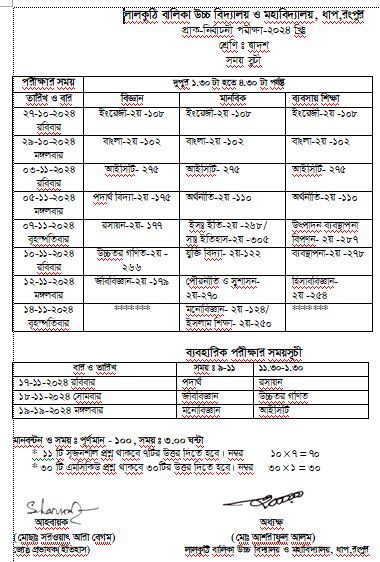 লালকুঠি বালিকা উচ্চ বিদ্যালয় ও মহাবিদ্যালয়, ধাপ,রংপুর
প্রাক-নির্বাচনী পরীক্ষা-২০২৪ খ্রিঃ
শ্রেণি ঃ দ্বাদশ
সময় সুচী
পরীক্ষার সময় দুপুর ১.৩০ টা হতে ৪.৩০ টা পর্যন্ত
তারিখ ও বার বিজ্ঞান মানবিক ব্যবসায় শিক্ষা
২৭-১০-২০২৪ রবিবার ইংরেজী-২য়-১০৮ ইংরেজী-২য় -১০৮ ইংরেজী-২য় -১০৮
২৯-১০-২০২৪ মঙ্গলবার বাংলা-২য় -১০২ বাংলা-২য় -১০২ বাংলা-২য় -১০২
০৩-১১-২০২৪ রবিবার আইসিটি- ২৭৫ আইসিটি- ২৭৫ আইসিটি- ২৭৫
০৫-১১-২০২৪ মঙ্গলবার পদার্থ বিদ্যা-২য় -১৭৫ অর্থনীতি-২য় -১১০ অর্থনীতি-২য় -১১০
০৭-১১-২০২৪ বৃহস্পতিবার রসায়ন-২য়- ১৭৭ ইসঃ ইতি-২য় -২৬৮/ সাঃ ইতিহাস-২য় -৩০৫ উৎপাদন ব্যবস্থাপনা বিপণন- ২য় -২৮৭
১০-১১-২০২৪ রবিবার উচ্চতর গণিত-২য় - ২৬৬ যুক্তি বিদ্যা-২য়-১২২ ব্যবস্থাপনা-২য় -২৭৮
১২-১১-২০২৪ মঙ্গলবার জীববিজ্ঞান-২য় -১৭৯ পৌরনীতি ও সুশাসন- ২য়-২৭০ হিসাববিজ্ঞান- ২য় -২৫৪
১৪-১১-২০২৪ বৃহস্পতিবার ******* মনোবিজ্ঞান -২য় -১২৪/ ইসলাম শিক্ষা- ২য়-২৫০ *******
ব্যবহারিক পরীক্ষার সময়সূচী
বার ও তারিখ সময় ঃ ৯-১১ ১১.৩০-১.৩০
১৭-১১-২০২৪ রবিবার পদার্থ রসায়ন
১৮-১১-২০২৪ সোমবার জীববিজ্ঞান উচ্চতর গণিত
১৯-১৯-২০২৪ মঙ্গলবার মনোবিজ্ঞান আইসিটি
মানবন্টন ও সময় ঃ পূর্ণমান - ১০০ , সময় ঃ ৩.০০ ঘন্টা
* ১১ টি সৃজনশীল প্রশ্ন থাকবে ৭টির উত্তর দিতে হবে। নম্বর ১০×৭ = ৭০
* ৩০ টি এমসিকিউ প্রশ্ন থাকবে ৩০টির উত্তর দিতে হবে। নম্বর ৩০×১ = ৩০
আহবায়ক অধ্যক্ষ
(মোছাঃ সরওয়াৎ আরা বেগম) (মোঃ আশরাফুল আলম)
জ্যেষ্ঠ প্রভাষক(ইতিহাস) লালকুঠি বালিকা উচ্চ বিদ্যালয় ও মহাবিদ্যালয়, ধাপ,রংপুর